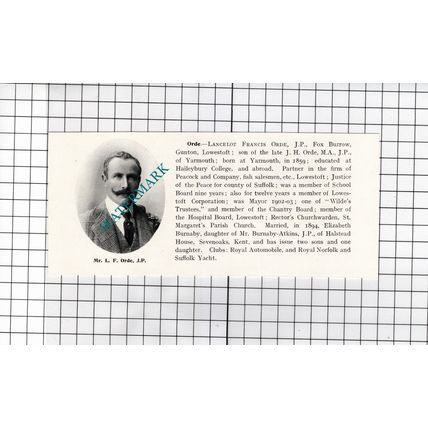 Orde—LANCELOT FRANCIS ORDE, J.P., FOX BURROW,
Gunton, Lowestoft; son of the late J. H. Orde, M.A., J.P.,
of Yarmouth; born at Yarmouth, in 1859; educated at
Haileybury College, and abroad. Partner in the firm of
Peacock and Company, fish salesmen, etc., Lowestoft; Justice
of the Peace for county of Suffolk; was a member of School
Board nine years; also for twelve years a member of Lowes-
toft Corporation; was Mayor 1902-03; one of "Wilde's
Trustees," and member of the Chantry Board; member of
the Hospital Board, Lowestoft; Rector's Churchwarden, St.
Margaret's Parish Church. Married, in 1894, Elizabeth
Burnaby, daughter of Mr. Burnaby-Atkins, J.P., of Halstead
House, Sevenoaks, Kent, and has issue two sons and one
daughter. Clubs: Royal Automobile, and Royal Norfolk and
Suffolk Yacht.
Mr. L. F. Orde, J.P.
WATERMARK